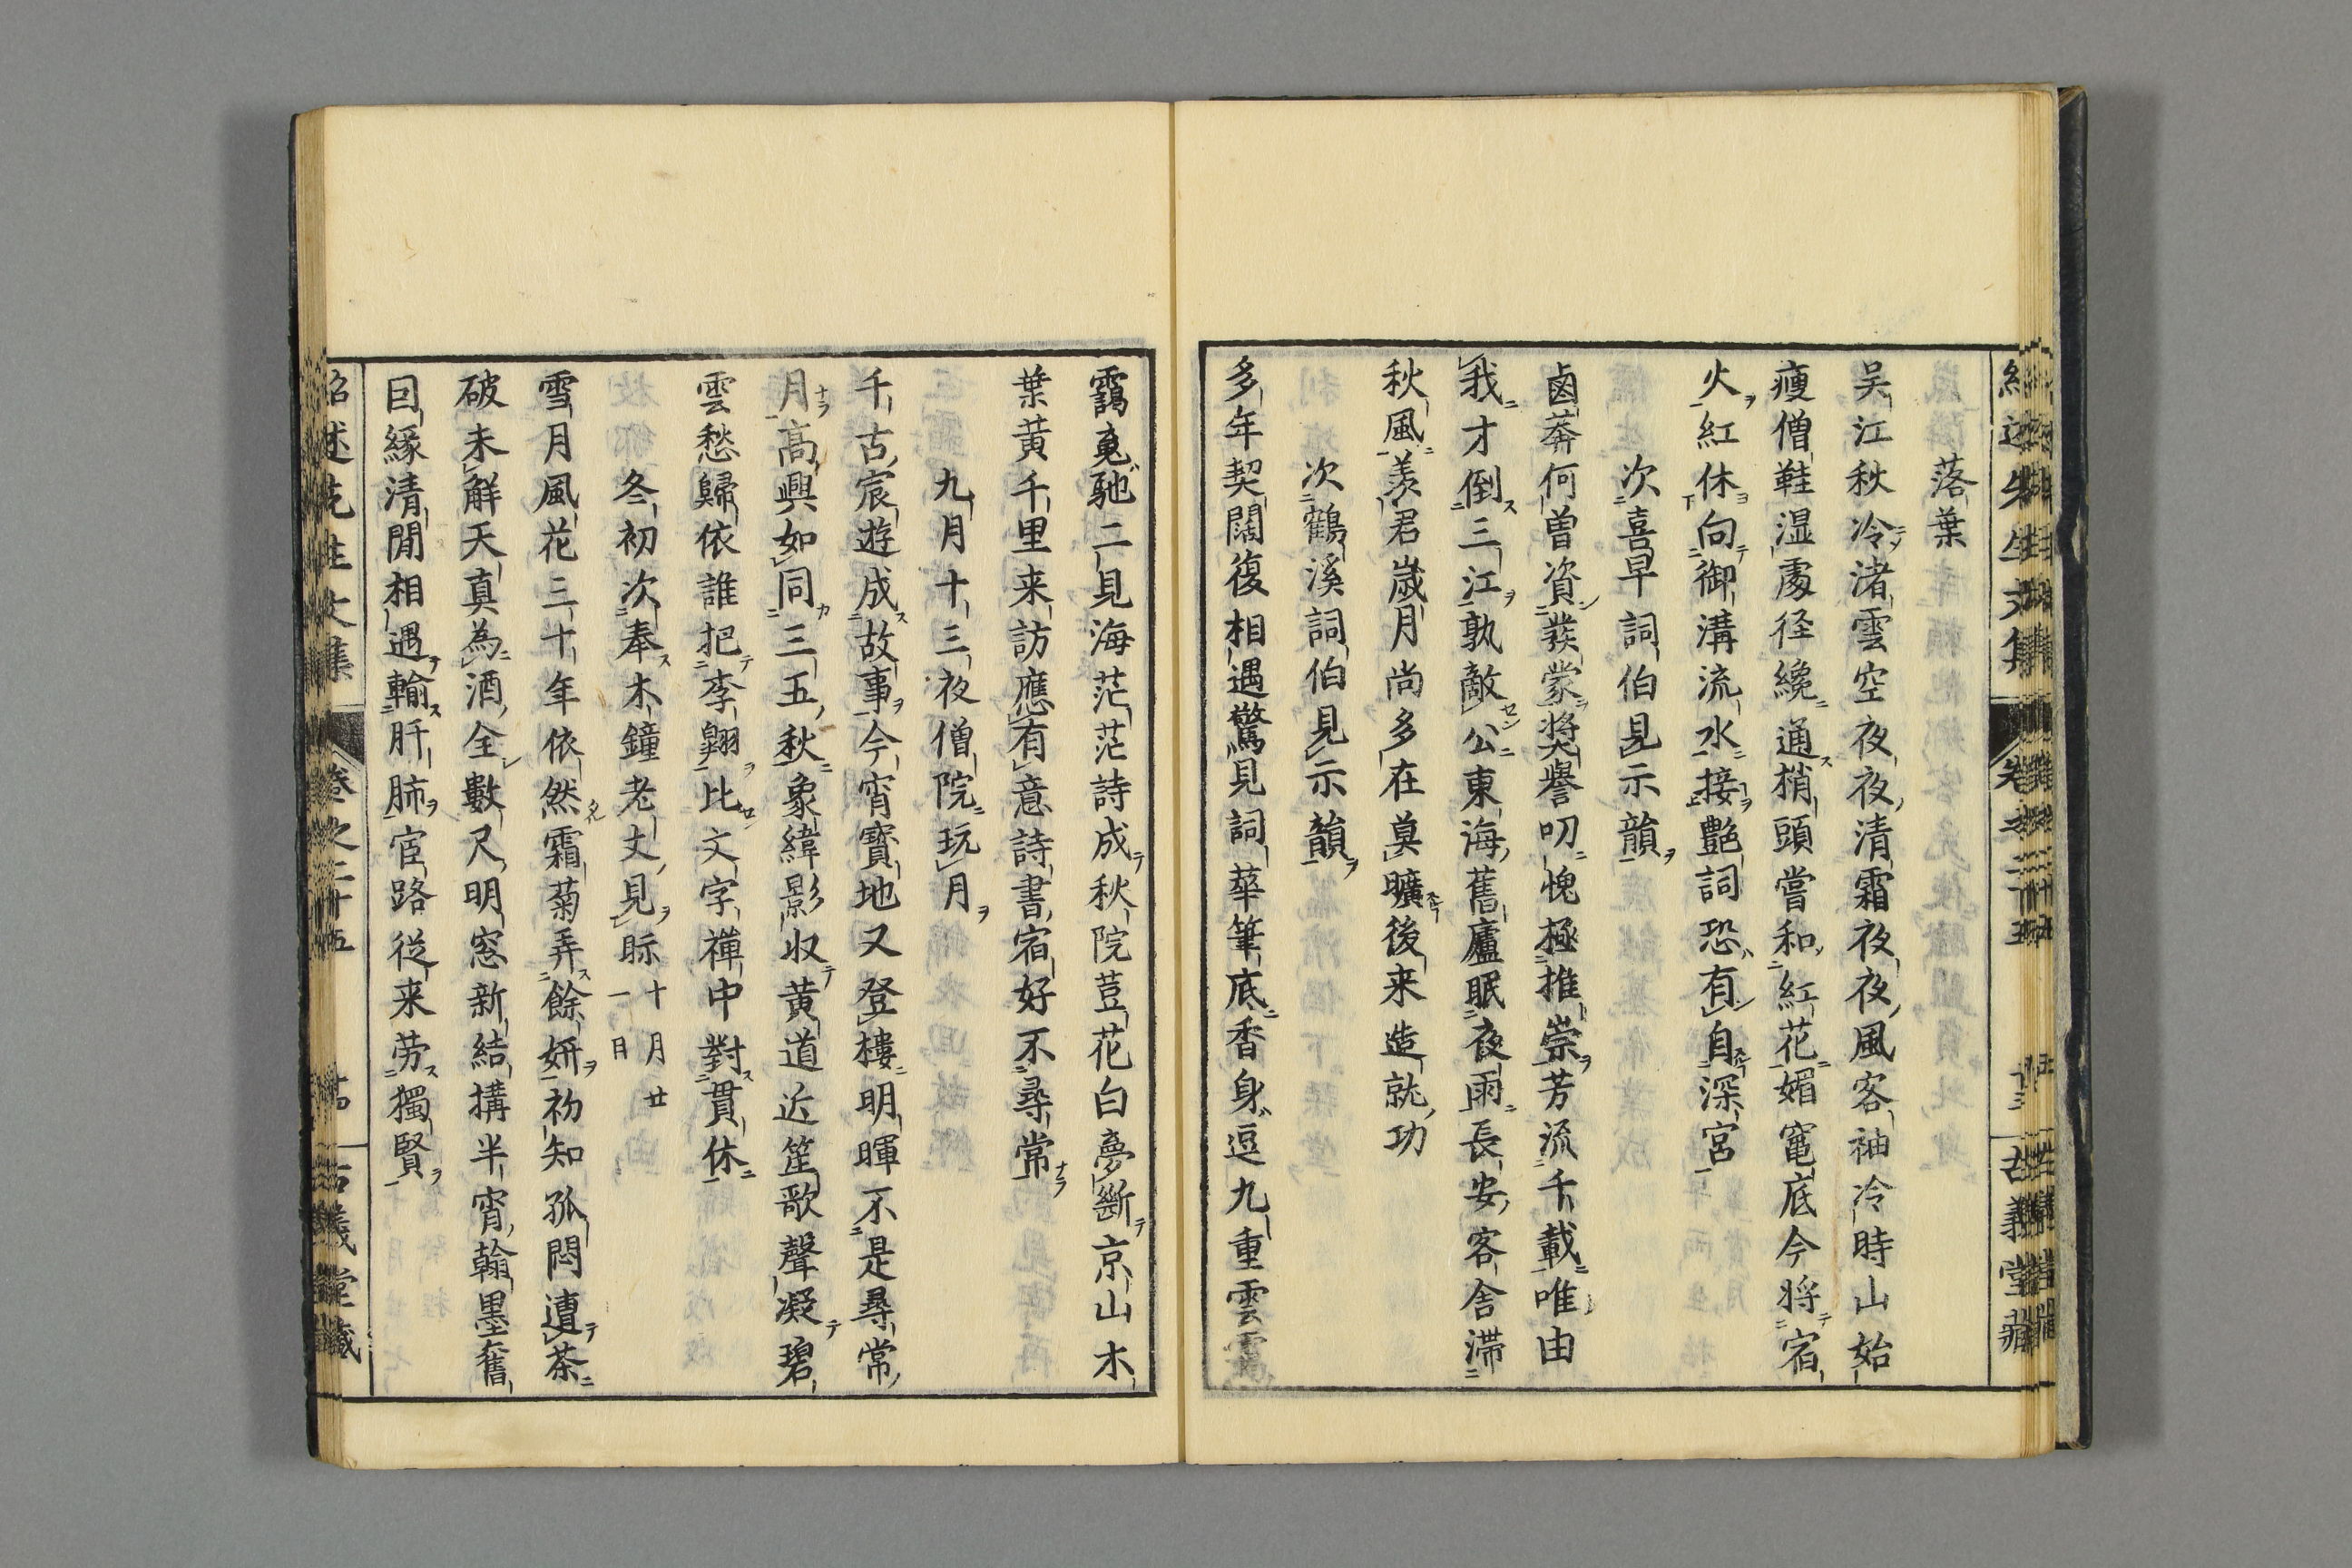 落葉
吴江秋冷渚雲空夜夜清霜夜夜風客袖冷時山始
瘦僧鞋湿處径纔通梢頭嘗和紅花媚竃底今将宿
火紅休向御溝流水接艶詞恐有自深宮
次喜早詞伯見示韻
鹵莽何曽資發蒙奨譽叨愧極推崇芳流千載唯由
我才倒三江孰敵公東海舊廬眠夜雨長安客舎滞
秋風羨君歳月尚多在莫曠後来造就功
次鶴溪詞伯見示韻
多年契闊復相遇驚見詞華筆底香身逗九重雲
靄䰟馳二見海茫茫詩成秋院荳花白夢斷京山木
葉黄千里来訪應有意詩書宿好不尋常
九月十三夜僧院玩月
千古宸遊成故事今宵寳地又登樓明暉不是尋常
月高興如同三五秋象緯影収黄道近笙歌聲凝碧
雲愁歸依誰把李翺比文字禅中對貫休
冬初次奉木鐘老丈見眎十月廿一日
雪月風花三十年依然霜菊弄餘妍初知孤悶遣茶
破未解天真為酒全數尺明窓新結搆半宵翰墨奮
回縁清閒相遇輸肝肺宦路従来労獨賢
紹述先生文集
卷之二十五
古義堂藏